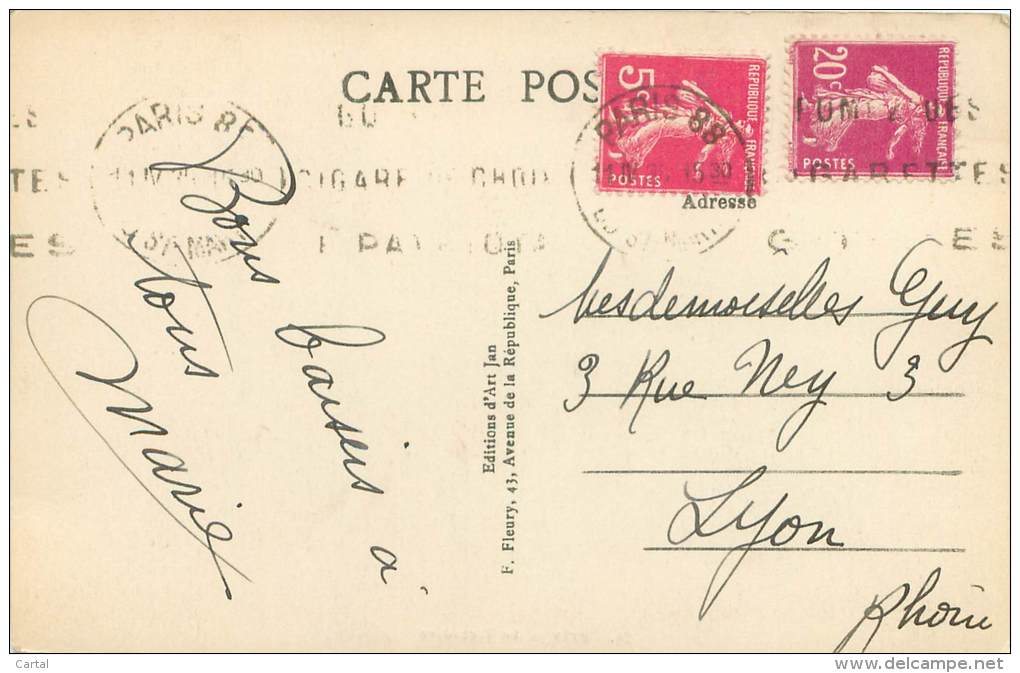 CARTE POS
5c
REPUBLIQUE FRANÇAISE
POSTES
20c
REPUBLIQUE FRANÇAISE
POSTES
PARIS 88
PARIS 88
15 30
FUMEZ DES
CIGARETTES
Adresse
Bons
baisers à
tous
Marie
Editions d'Art Jan
F. Fleury, 43, Avenue de la République, Paris
Mesdemoiselles Guy
3 Rue Ney 3
Lyon
Rhône
Cartal
www.delcampe.net